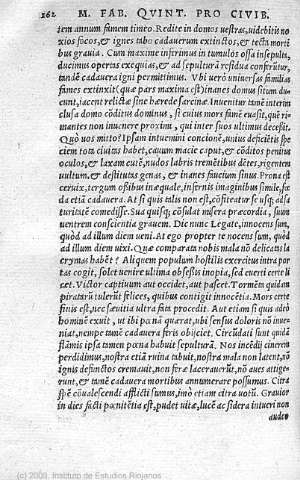 162 M. FAB. QVINT. PRO CIVIB.
tem annum famem timeo. Redite in domos uestras, uidebitis no
xios focos, & ignes tabo cadauerum extinctos, & tecta morti
bus grauia. Cum maxime inferimus in tumulos ossa insepulta,
ducimus operta exequias, & ad sepulturã residua conferuntur,
tandẽ cadauera igni permittimus. Vbi uerò uniuersas familias
fames extinxit (quæ pars maxima est) inanes domus situm du
cunt, iacent relictæ sine hærede sarcinæ. Inuenitur tunc interim
clusa domo
mantes non inuenere proximi, qui inter suos ultimus decessit.
Quò uos mitto? Ipsam intuemini concionẽ, unius deficiẽtis spe
ciem tota ciuitas habet, cauum macie caput, & cõditos penitus
oculos, & laxam cutẽ, nudos labris tremẽtibus dẽtes, rigentem
uultum, & destitutas genas, & inanes faucium sinus. Prona est
ceruix, tergum ossibus inæquale, infernis imaginibus simile, fœ
da etiã cadauera. At si quis talis non est, cõfiteatur se usq; ad sa
turitatẽ comedisse. Sua quisq; cõsulat misera præcordia, suum
uentrem conscientia grauem. Dic nunc Legate, innocens sum,
quòd ad illum diem ueni. At ego propter te nocens sum, quòd
ad illum diem uixi. Quæ comparata nobis mala nõ delicatas la
crymas habẽt? Aliquem populum hostilis exercitus intra por
tas cogit, solet uenire ultima obsessis inopia, sed euerti certe li
cet. Victor captiuum aut occidet, aut pascet. Tormẽta quidam
piratarũ tulerũt felices, quibus contigit innocẽtia. Mors certe
finis est, nec sæuitia ultra fata procedit. Aut etiam si quis adeò
hominẽ exuit, ut ibi pœnã quærat, ubi sensus doloris nõ inue
niat, nempe tunc cadauera feris obijcet. Circũdati sunt quidã
flãmis ipsa tamen pœna habuit sepulturã. Nos incẽdij cinerem
perdidimus, nostra etiã ruina tabuit, nostra mala non latent, nõ
ignis defunctos cremauit, non feræ lacerauerũt, nõ aues attige-
runt, & tunẽ cadauera mortibus annumerare possumus. Citra
spẽ cõualescendi afflicti sumus, imò etiam citra uotũ. Grauior
in dies facti pœnitẽtia est, pudet uitæ, lucẽ ac sidera intueri non
audeo
(c) 2009. Instituto de Estudios Riojanos